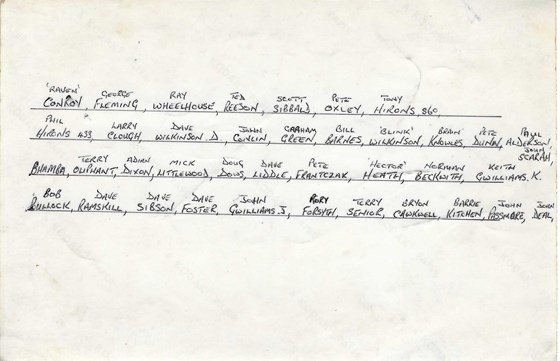 'RAVEN' GEORGE RAY TED SCOTT PETE TONY
CONROY, FLEMING, WHEELHOUSE, REESON, SIBBALD, OXLEY, HIRONS 860
PHIL LARRY DAVE JOHN GRAHAM BILL 'BLINK' BRIAN PETE PAUL
HIRONS 433, CLOUGH, WILKINSON.D, CONLIN, GREEN, BARNES, WILKINSON, KNOWLES, DUNN, ALDERSON,
JOHN
SCARAH,
TERRY ADRIAN MICK DOUG DAVE PETE 'HECTOR' NORMAN KEITH
BHAMBA, OLIPHANT, DIXON, LITTLEWOOD, LIDDLE, FRANTCZAK, HEATH, BECKWITH, GWILLIAMS.K.
'BOB DAVE DAVE DAVE JOHN RORY TERRY BRYON BARRIE JOHN JOHN
BULLOCK, RAMSKILL, SIBSON, FOSTER, GWILLIAMS.J, FORSYTH, SENIOR, CAWKWELL, KITCHEN, PASSMORE, DEAL,